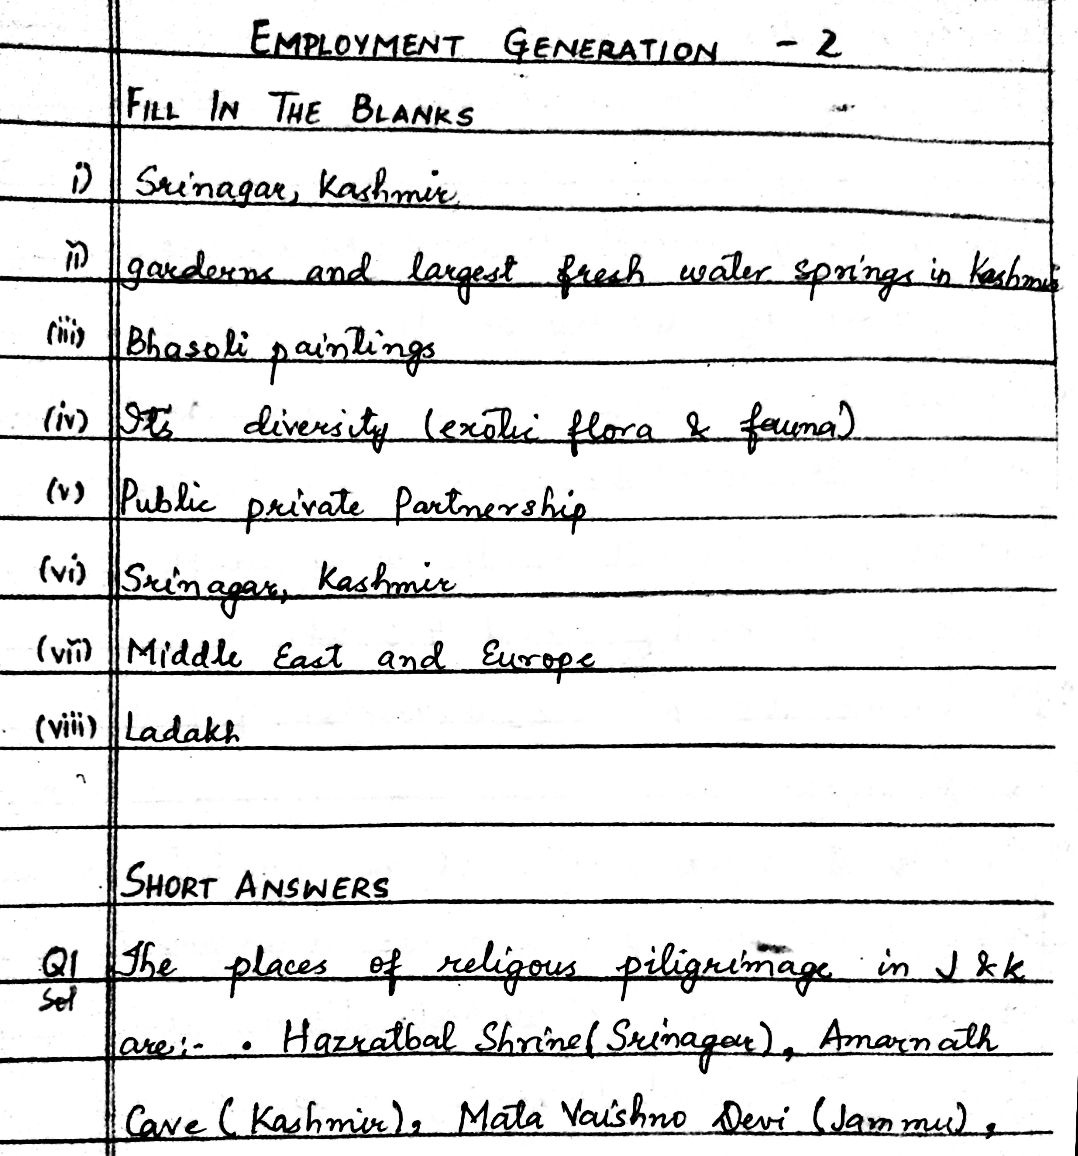 EMPLOYMENT GENERATION - 2
FILL IN THE BLANKS
i) Srinagar, Kashmir.
ii) garderns and largest fresh water springs in Kashmir
(iii) Bhasoli paintings
(iv) Its diversity (exotic flora & fauna)
(v) Public private Partnership
(vi) Srinagar, Kashmir
(vii) Middle East and Europe
(viii) Ladakh
SHORT ANSWERS
Q1 The places of religous piligrimage in J & K
Sol are:- • Hazratbal Shrine (Srinagar), Amarnath
Cave (Kashmir), Mata Vaishno Devi (Jammu),